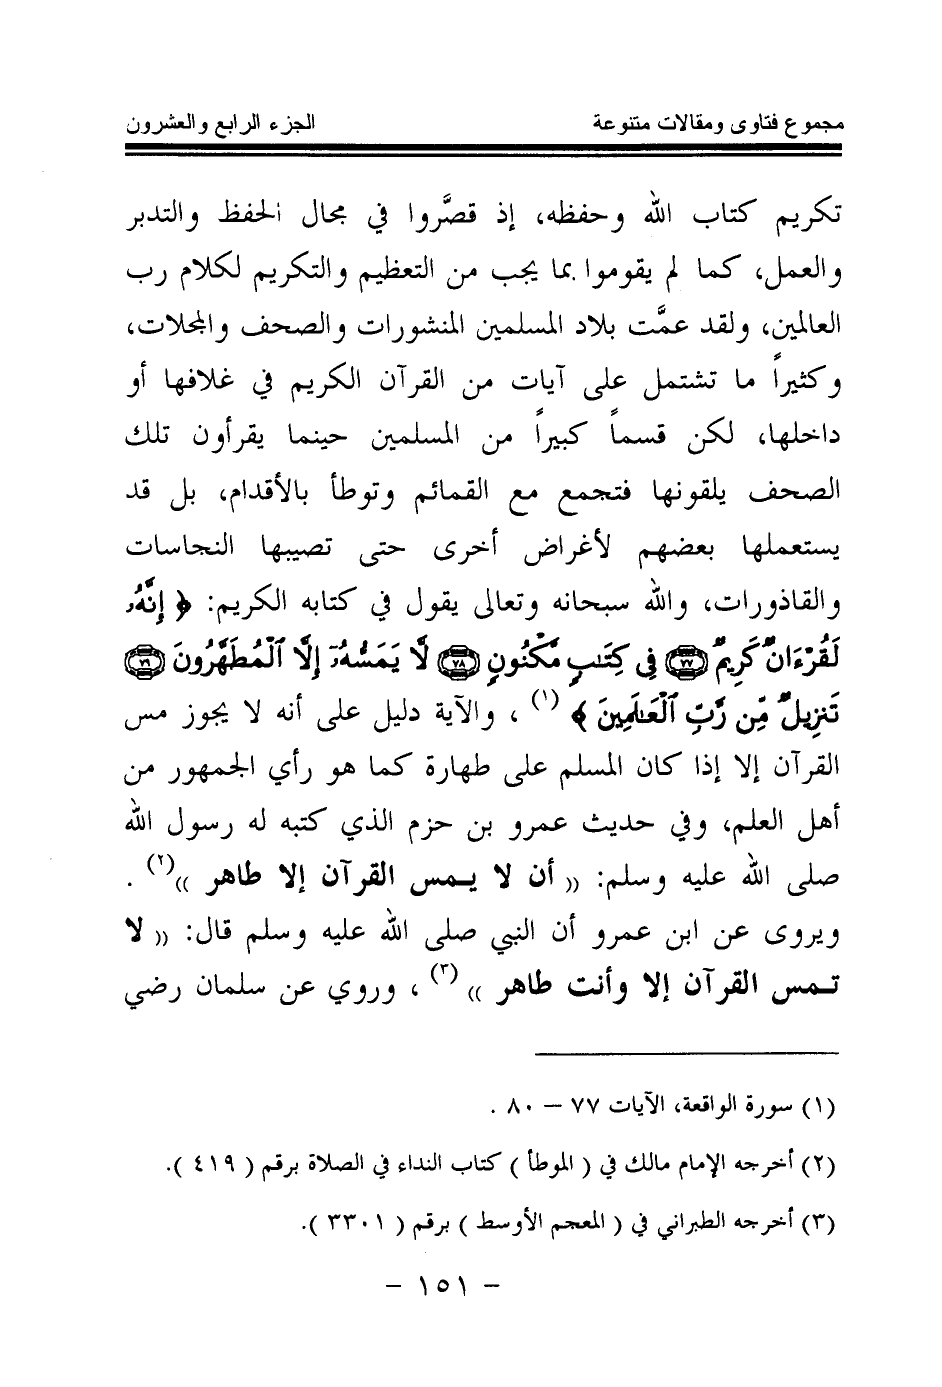 مجموع فتاوى ومقالات متنوعة الجزء الرابع والعشرون
تكريم كتاب الله وحفظه، إذ قصَّروا في مجال الحفظ والتدبر
والعمل، كما لم يقوموا بما يجب من التعظيم والتكريم لكلام رب
العالمين، ولقد عمَّت بلاد المسلمين المنشورات والصحف والمجلات،
وكثيراً ما تشتمل على آيات من القرآن الكريم في غلافها أو
داخلها، لكن قسماً كبيراً من المسلمين حينما يقرأون تلك
الصحف يلقونها فتجمع مع القمائم وتوطأ بالأقدام، بل قد
يستعملها بعضهم لأغراض أخرى حتى تصيبها النجاسات
والقاذورات، والله سبحانه وتعالى يقول في كتابه الكريم: ﴿ إِنَّهُۥ
لَقُرْءَانٌ كَرِيمٌ ﴿٧٧﴾ فِى كِتَٰبٍ مَّكْنُونٍ ﴿٧٨﴾ لَّا يَمَسُّهُۥٓ إِلَّا ٱلْمُطَهَّرُونَ ﴿٧٩﴾
تَنزِيلٌ مِّن رَّبِّ ٱلْعَٰلَمِينَ ﴾ (١) ، والآية دليل على أنه لا يجوز مس
القرآن إلا إذا كان المسلم على طهارة كما هو رأي الجمهور من
أهل العلم، وفي حديث عمرو بن حزم الذي كتبه له رسول الله
صلى الله عليه وسلم: (( أن لا يمس القرآن إلا طاهر ))(٢) .
ويروى عن ابن عمرو أن النبي صلى الله عليه وسلم قال: (( لا
تمس القرآن إلا وأنت طاهر ))(٣) ، وروي عن سلمان رضي
(١) سورة الواقعة، الآيات ٧٧ – ٨٠ .
(٢) أخرجه الإمام مالك في ( الموطأ ) كتاب النداء في الصلاة برقم ( ٤١٩ ).
(٣) أخرجه الطبراني في ( المعجم الأوسط ) برقم ( ٣٣٠١ ).
– ١٥١ –